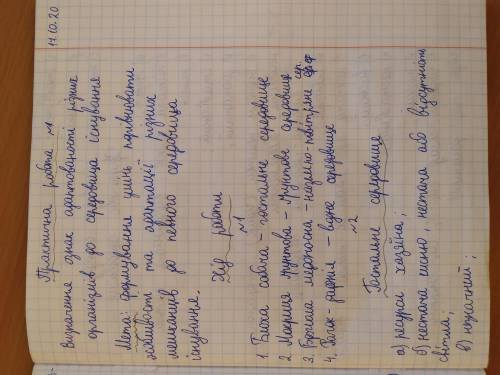 11.10.20
Практична работа №1
Визначення ознак адаптованості різних
організмів до середовища існування
Мета: формування умінь порівнювати
особливості та адаптації різних
мешканців до певного середовища
існування.
Хід работи
№1
1. Блоха собача - гостальне середовище
2. Мокриця - Ґрунтове середовище
3. Бджола медоносна - наземно-повітряне сер
4. Вовк - водне середовище
№2
Гостальне середовище
а) ресурси хазяїна;
б) нестача кисню, нестача або відсутність
світла;
в)